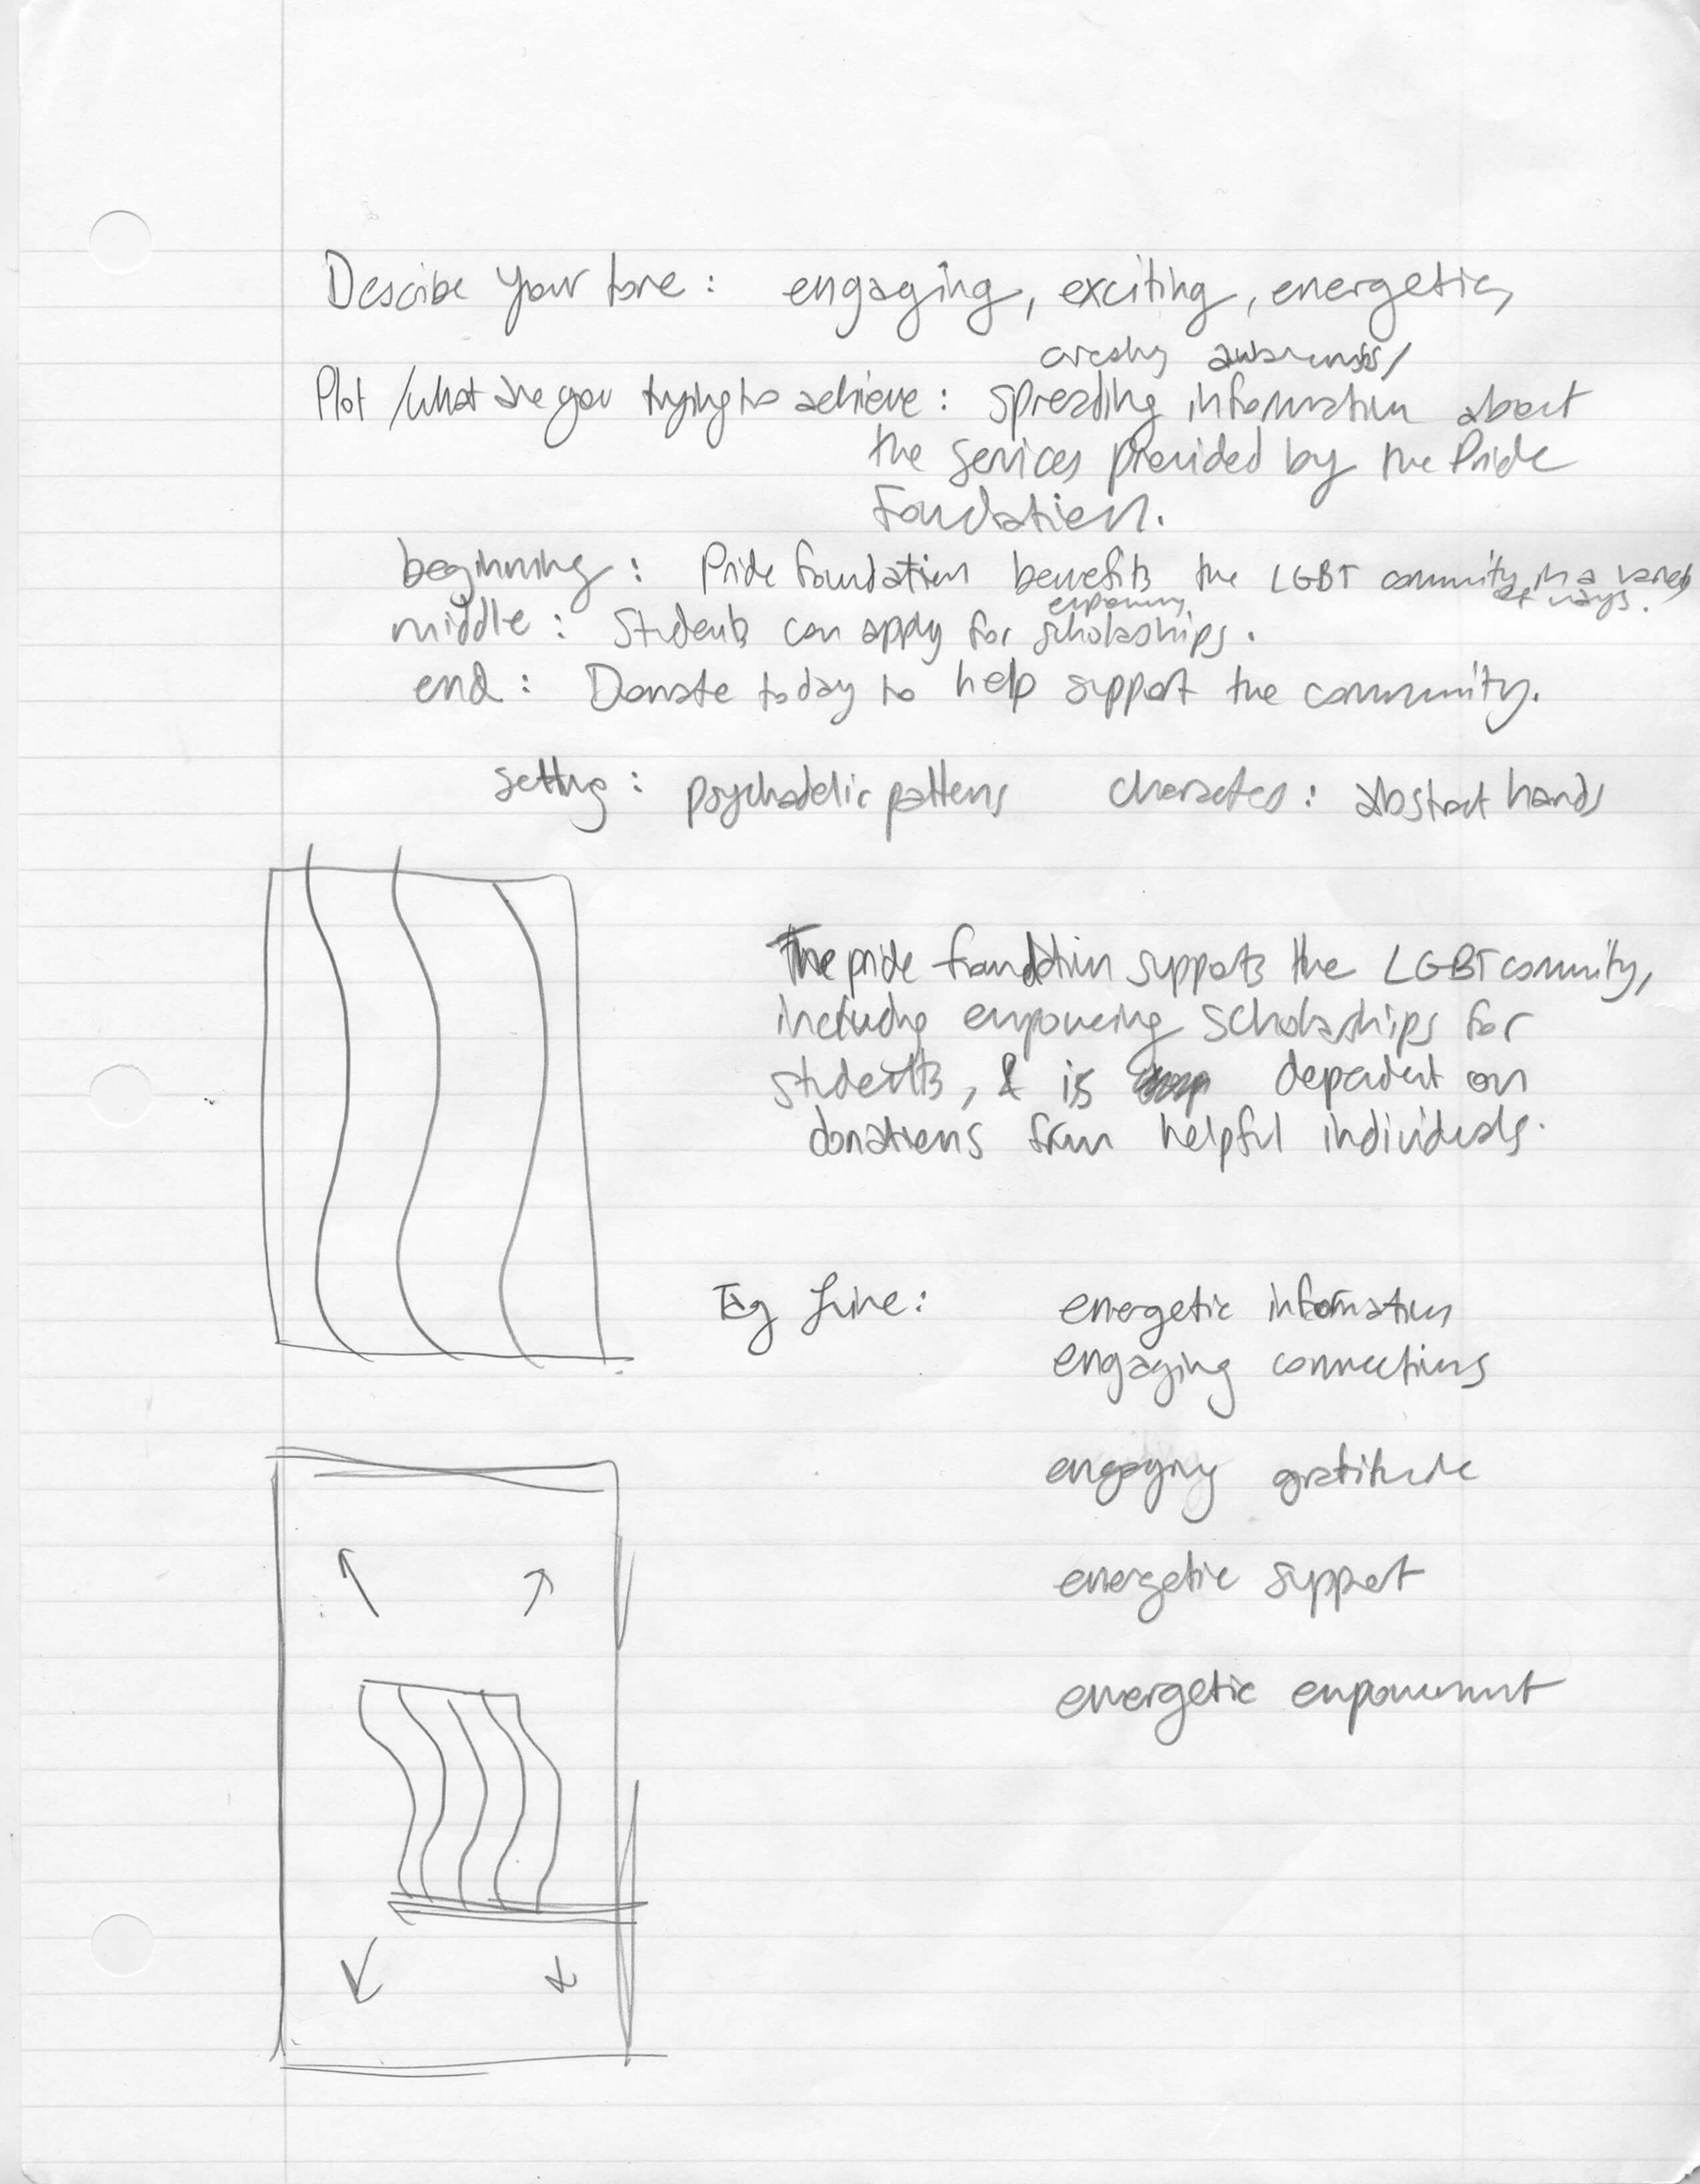 Describe your tone: engaging, exciting, energetic,
creating awareness/
Plot / what are you trying to achieve: spreading information about
the services provided by the Pride
Foundation.
beginning: Pride foundation benefits the LGBT community in a variety
of ways.
empowering
middle: Students can apply for scholarships.
end: Donate today to help support the community.
setting: psychadelic patterns characters: abstract hands
The pride foundation supports the LGBT community,
including empowering scholarships for
students, & is dependent on
donations from helpful individuals.
Tag Line: energetic information
engaging connections
engaging gratitude
energetic support
energetic empowerment